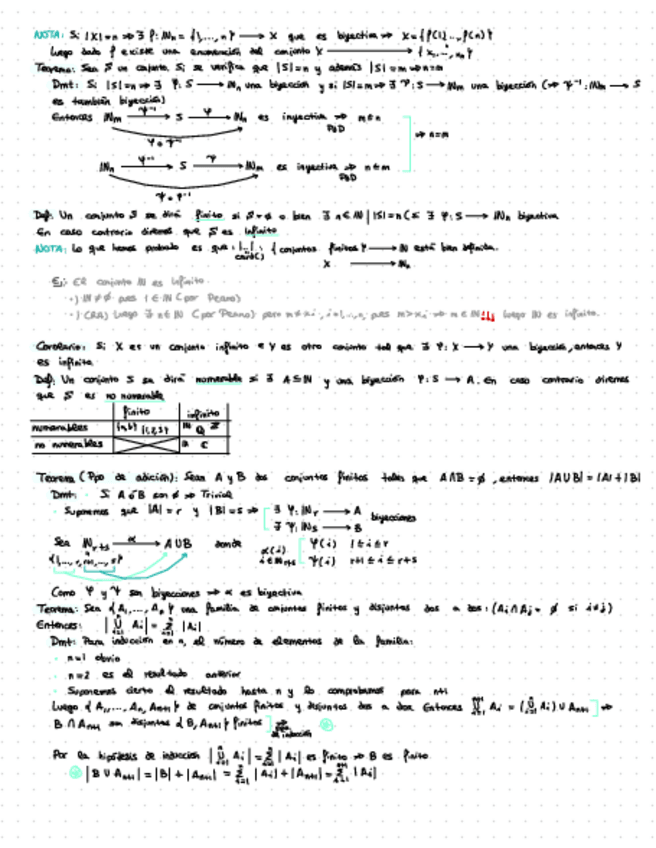 NOTA: Si |X|=n ⇒ ∃ f: ℕn = {1,...,n} ⟶ X que es biyectiva ⇒ X={f(1),...,f(n)}
Luego dado f existe una enumeración del conjunto X ⟶ {x1,...,xn}
Teorema: Sea S un conjunto. Si se verifica que |S|=n y además |S|=m ⇒ n=m
Dmt: Si |S|=n ⇒ ∃ φ: S ⟶ ℕn una biyección y si |S|=m ⇒ ∃ ψ: S ⟶ ℕm una biyección (⇒ ψ⁻¹: ℕm ⟶ S
es también biyección)
Entonces ℕm ⟶ψ⁻¹ S ⟶φ ℕn es inyectiva ⇒ m≤n
PDD
φ∘ψ⁻¹
⇒ n=m
ℕn ⟶φ⁻¹ S ⟶ψ ℕm es inyectiva ⇒ n≤m
PDD
ψ∘φ⁻¹
Def: Un conjunto S se dirá finito si S=∅ o bien ∃ n∈ℕ | |S|=n (≡ ∃ φ: S ⟶ ℕn biyectiva
En caso contrario diremos que S es infinito
NOTA: Lo que hemos probado es que |...| : {conjuntos finitos} ⟶ ℕ está bien definida.
card()
X ⟶
Ej: El conjunto ℕ es infinito.
·) ℕ≠∅ pues 1∈ℕ (por Peano)
·) (RA) Luego ∃ n∈ℕ (por Peano) pero n≠xi, i=1,...,n, pues m>xi ⇒ m∈ℕ luego ℕ es infinito.
Corolario: Si X es un conjunto infinito e Y es otro conjunto tal que ∃ φ: X ⟶ Y una biyección, entonces Y
es infinito.
Def: Un conjunto S se dirá numerable si ∃ A⊆ℕ y una biyección φ: S ⟶ A. En caso contrario diremos
que S es no numerable
finito infinito
numerables {a,b} {1,2,3} ℕ ℚ ℤ
no numerables ℝ ℂ
Teorema (Ppo de adición): Sean A y B dos conjuntos finitos tales que A∩B=∅, entonces |A∪B|=|A|+|B|
Dmt: · Si A o B son ∅ ⇒ Trivial
· Suponemos que |A|=r y |B|=s ⇒ ∃ φ: ℕr ⟶ A
∃ ψ: ℕs ⟶ B biyecciones
Sea ℕr+s ⟶α A∪B donde α(i) φ(i) 1≤i≤r
{1,...,r,r+1,...,r+s} i∈ℕr+s ψ(i) r+1≤i≤r+s
Como φ y ψ son biyecciones ⇒ α es biyectiva
Teorema: Sea {A1,...,An} una familia de conjuntos finitos y disjuntos dos a dos: (Ai∩Aj=∅ si i≠j)
Entonces: |⋃ⁿᵢ₌₁ Ai| = Σⁿᵢ₌₁ |Ai|
Dmt: Para inducción en n, el número de elementos de la familia:
· n=1 obvio
· n=2 es el resultado anterior
· Suponemos cierto el resultado hasta n y lo comprobamos para n+1
Luego {A1,...,An,An+1} de conjuntos finitos y disjuntos dos a dos. Entonces ⋃ⁿ⁺¹ᵢ₌₁ Ai = (⋃ⁿᵢ₌₁ Ai) ∪ An+1 ⇒
B ∩ An+1 son disjuntos {B, An+1} finitos ⇒
de inducción
Por la hipótesis de inducción |⋃ⁿᵢ₌₁ Ai| = Σⁿᵢ₌₁ |Ai| es finito ⇒ B es finito
|B ∪ An+1| = |B| + |An+1| = Σⁿᵢ₌₁ |Ai| + |An+1| = Σⁿ⁺¹ᵢ₌₁ |Ai|